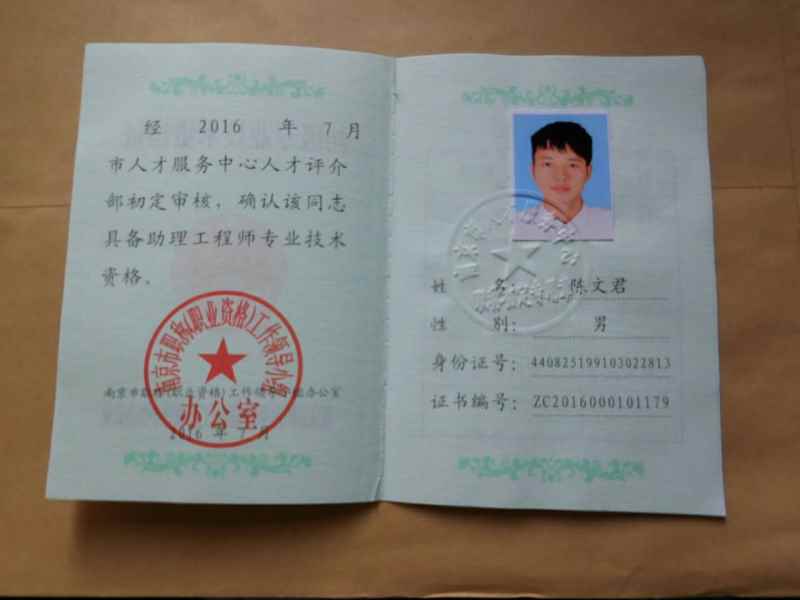 经 2016 年 7 月
市人才服务中心人才评介
部初定审核，确认该同志
具备助理工程师专业技术
资格。
南京市职称(职业资格)工作领导小组
办公室
南京市职称(职业资格)工作领导小组办公室
2016 年 7 月
姓 名： 陈文君
性 别： 男
身份证号： 440825199103022813
证书编号： ZC2016000101179